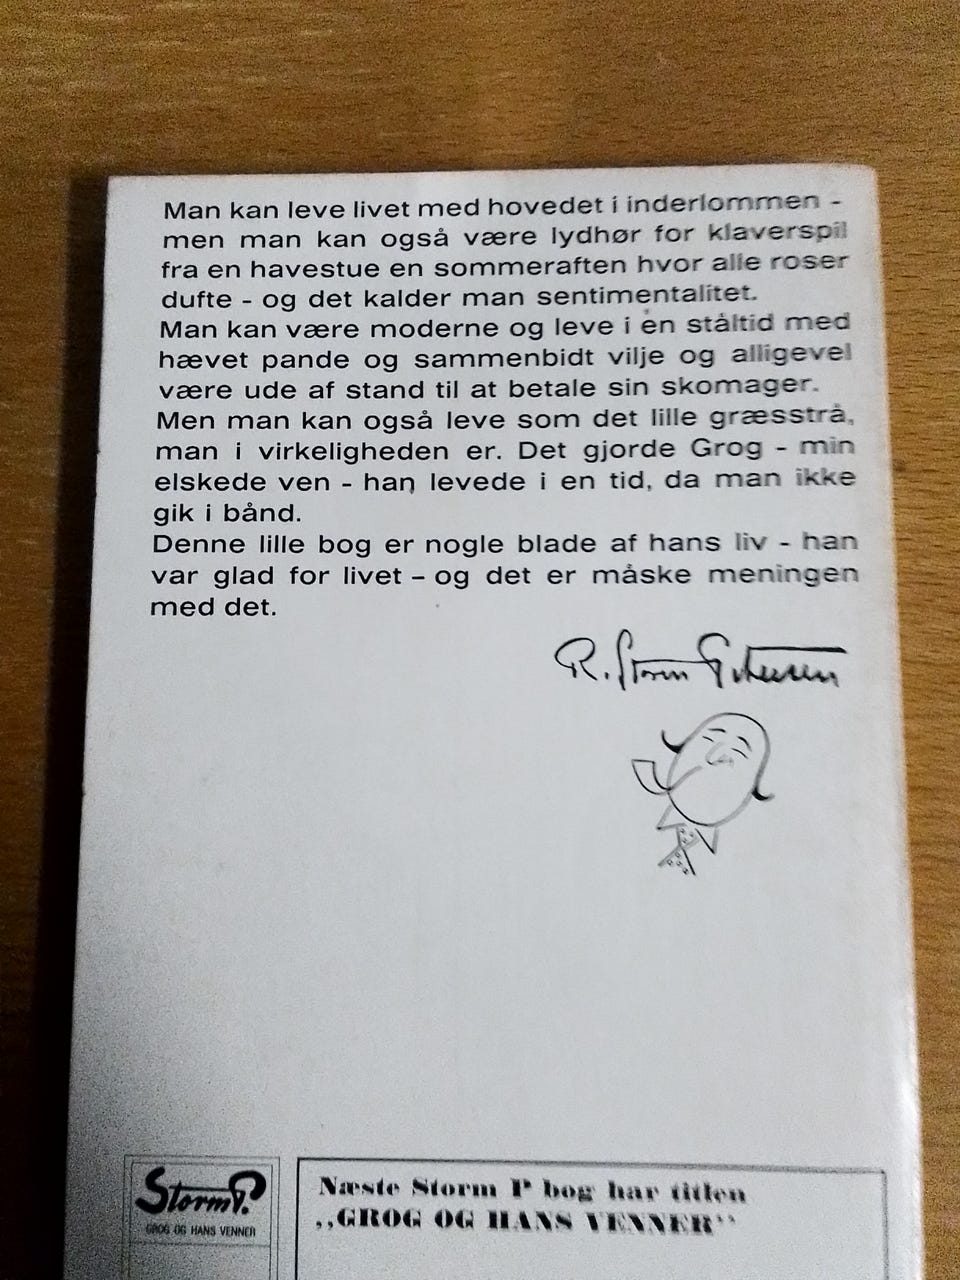 Man kan leve livet med hovedet i inderlommen -
men man kan også være lydhør for klaverspil
fra en havestue en sommeraften hvor alle roser
dufte - og det kalder man sentimentalitet.
Man kan være moderne og leve i en ståltid med
hævet pande og sammenbidt vilje og alligevel
være ude af stand til at betale sin skomager.
Men man kan også leve som det lille græsstrå,
man i virkeligheden er. Det gjorde Grog - min
elskede ven - han levede i en tid, da man ikke
gik i bånd.
Denne lille bog er nogle blade af hans liv - han
var glad for livet – og det er måske meningen
med det.
R. Storm Petersen
Storm P.
GROG OG HANS VENNER
Næste Storm P bog har titlen
,,GROG OG HANS VENNER''